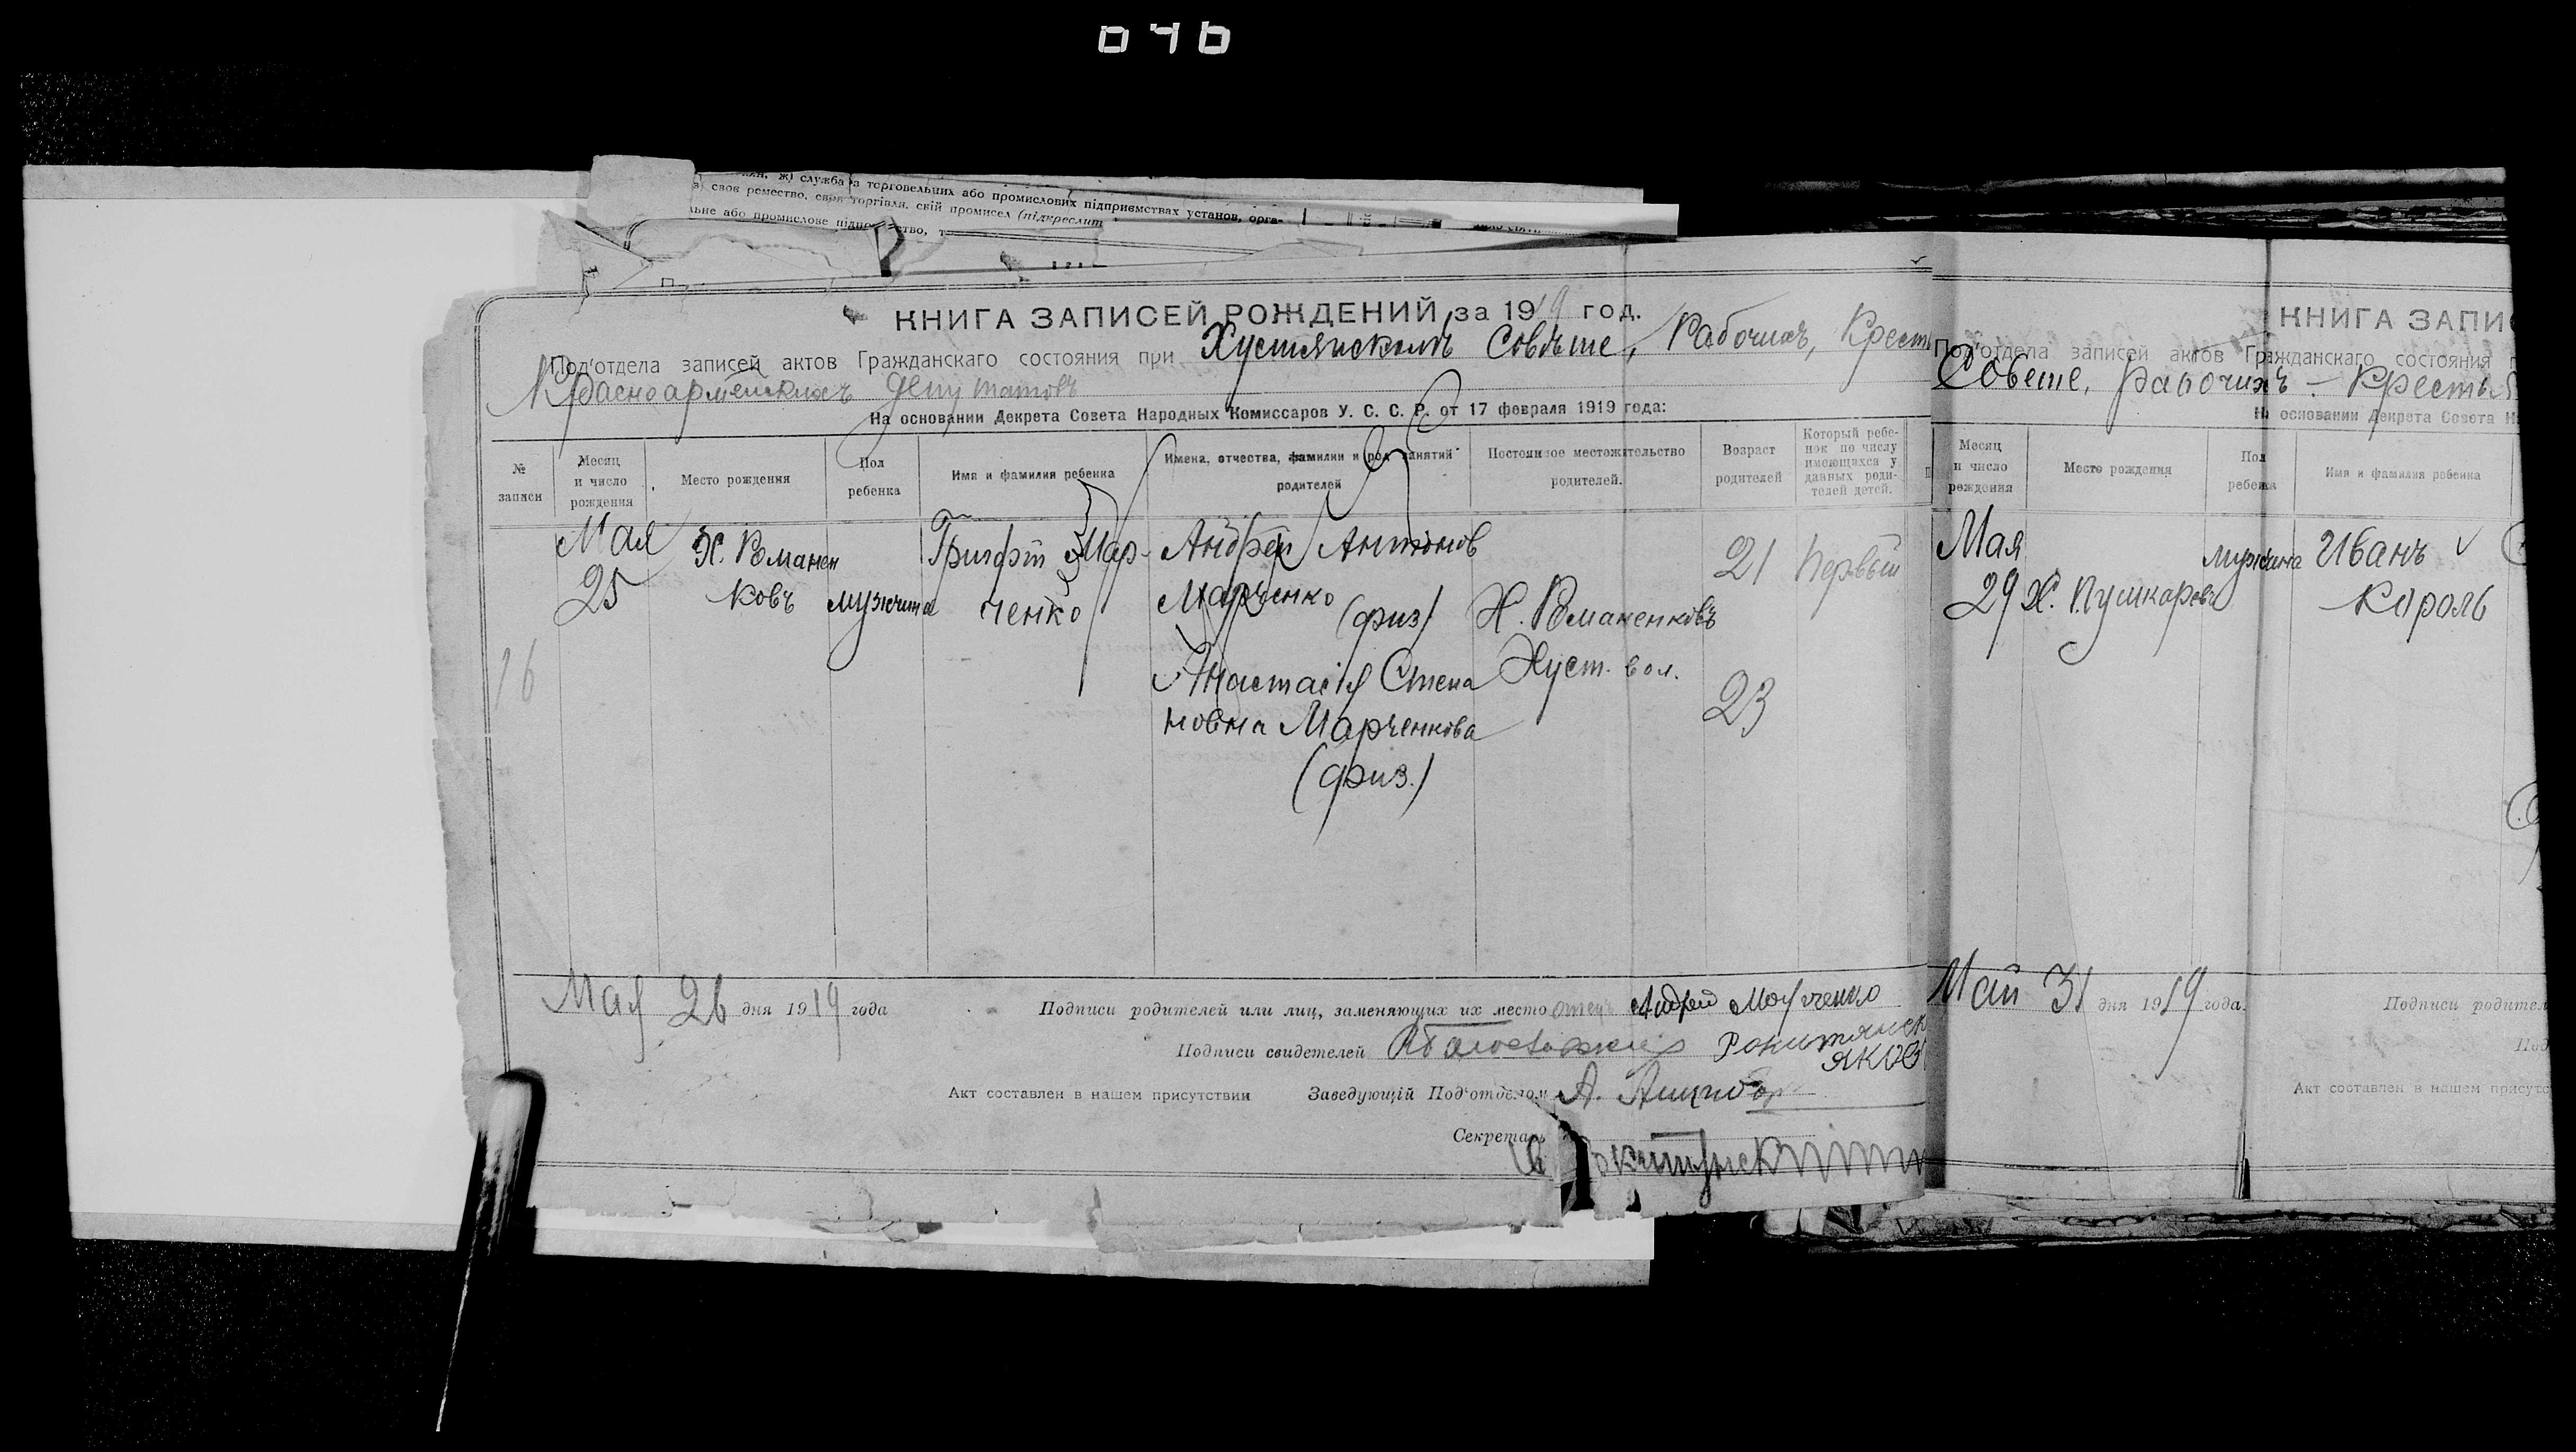 046
ж) служба в торговельних або промислових підприємствах установ, орга-
своє ремество, своя торгівля, свій промисел (підкреслит
або промислове
КНИГА ЗАПИСЕЙ РОЖДЕНИЙ за 1919 год.
Под'отдела записей актов Гражданскаго состояния при Хустянскомъ Совѣте, Рабочихъ, Крест
Красноармейскихъ Депутатовъ
На основании Декрета Совета Народных Комиссаров У. С. С. Р. от 17 февраля 1919 года:
№ записи
Месяц и число рождения
Место рождения
Пол ребенка
Имя и фамилия ребенка
Имена, отчества, фамилии и род занятий родителей
Постоянное местожительство родителей.
Возраст родителей
Который ребе-
нок по числу
имеющихся у
данных роди-
телей детей.
16
Мая
25
Х. Романен
ковъ
мужчина
Мар-
ченко
Андрей Антонов
Марченко
(физ)
Анастасія Степа
новна Марченкова
(физ.)
Х. Романенковъ
Хуст. вол.
21
23
Первый
Мая 26 дня 1919 года
Подписи родителей или лиц, заменяющих их место отец Андрей Марченко
Подписи свидетелей
Рокитянск
Яков
Акт составлен в нашем присутствии Заведующій Под'отделом А.
Секретарь
КНИГА ЗАПИ
Под'отдела записей актов Гражданскаго состояния п
Совете, Рабочихъ - Кресть
На основании Декрета Совета Н
Месяц и число рождения
Место рождения
Пол ребенка
Имя и фамилия ребенка
Мая
29
Х. Пушкаревъ
мужчина
Иванъ
Король
Май 31 дня 1919 года.
Подписи родител
Под
Акт составлен в нашем присутс